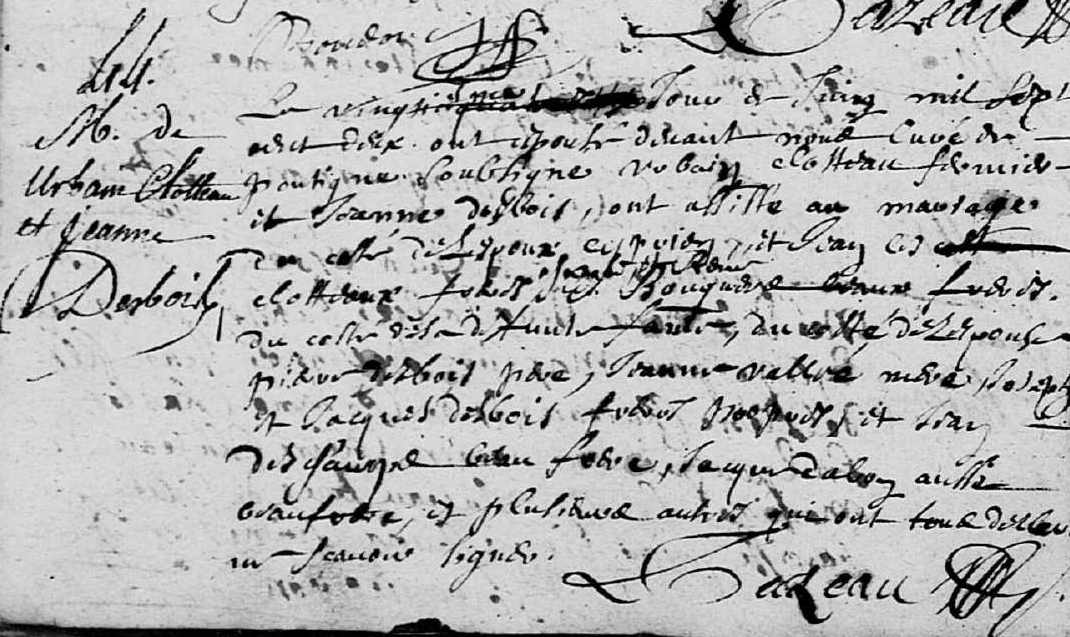 44.
M. de
Urbain Clotteau
et Jeanne
Desbois
Le vingt jour de juin mil sept
cent deux ont épousé devant nous curé de
pontigné soubsigné urbain clotteau fermier
et Jeanne desbois, ont assisté au mariage
du costé de l'Epoux et Jean
clotteaux freres Bouquere beaux freres.
du costé de la deffunte femme, du costé de l'Epouse
pierre desbois pere, Jeanne vallée mere, Joseph
et Jacques desbois freres et Jean
beau frere, Jacques aussi
beaufrere, et plusieurs autres qui ont tous déclaré
ne scavoir signer.
Gazeau